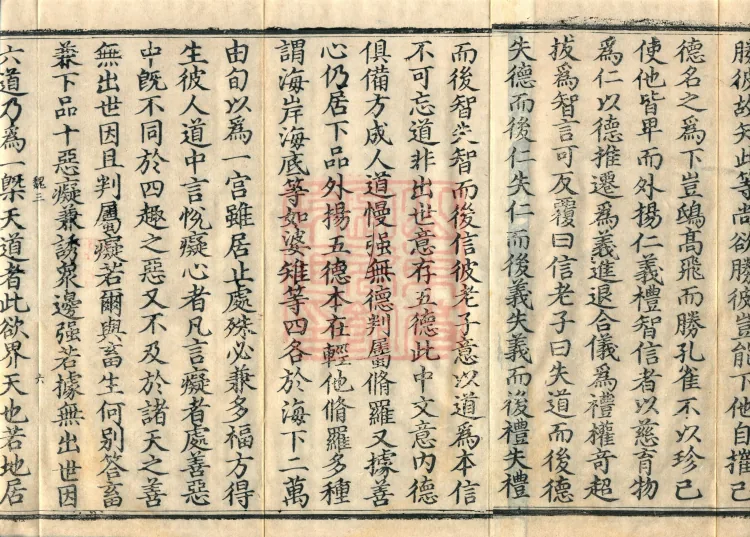 勝彼故知此等尚欲勝彼豈能下他自摧己
德名之爲下豈鴟高飛而勝孔雀不以珍己
使他皆卑而外揚仁義禮智信者以慈育物
爲仁以德推遷爲義進退合儀爲禮權奇超
拔爲智言可反覆曰信老子曰失道而後德
失德而後仁失仁而後義失義而後禮失禮
而後智失智而後信彼老子意以道爲本信
不可忘道非出世意存五德此中文意內德
俱備方成人道慢强無德判屬脩羅又據善
心仍居下品外揚五德本在輕他脩羅多種
謂海岸海底等如婆雉等四各於海下二萬
由旬以爲一宮雖居止處殊必兼多福方得
生彼人道中言恱癡心者凡言癡者處善惡
中旣不同於四趣之惡又不及於諸天之善
無出世因且判屬癡若爾與畜生何別答畜
兼下品十惡癡兼誘衆邊强若據無出世因
魏三 六
六道乃爲一槩天道者此欲界天也若地居